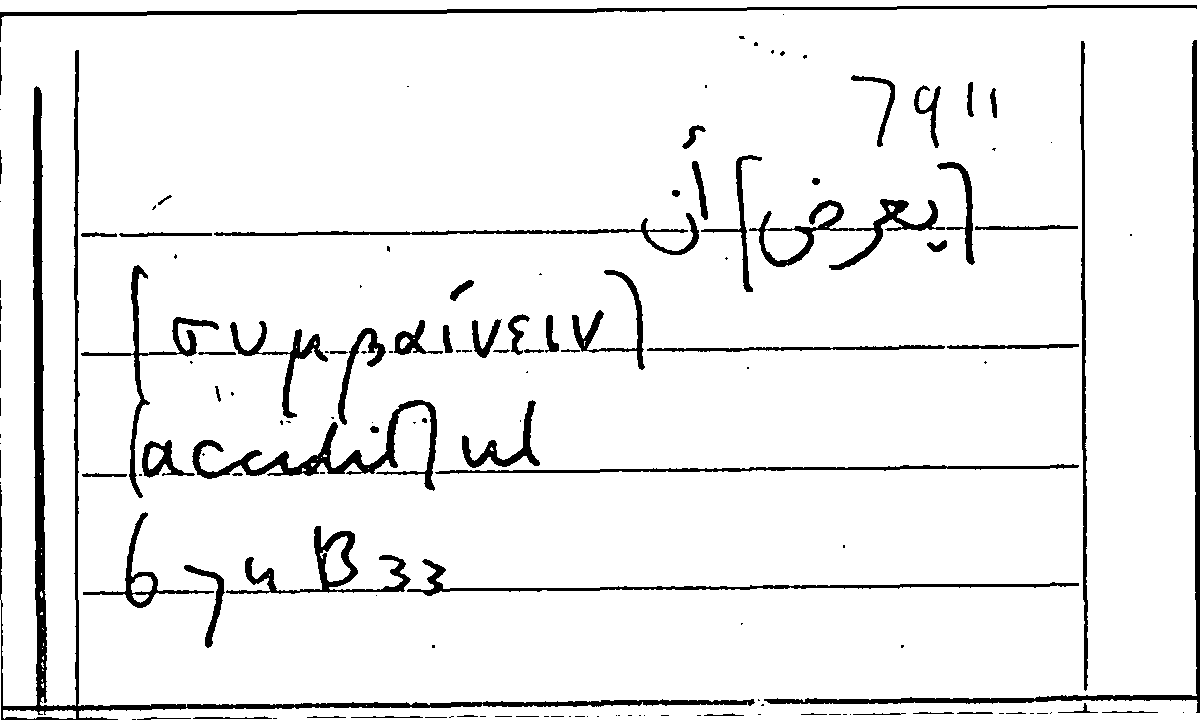 79 11
[يعرض] أن
[συμβαίνειν]
[accidit] ut
67u B33